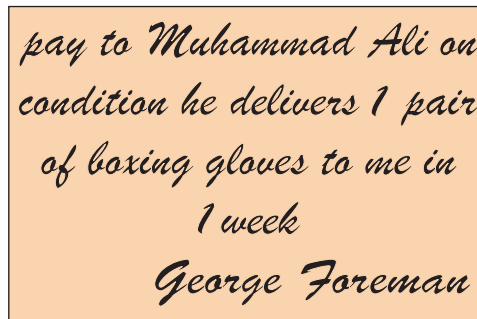 pay to Muhammad Ali on
condition he delivers 1 pair
of boxing gloves to me in
1 week
George Foreman